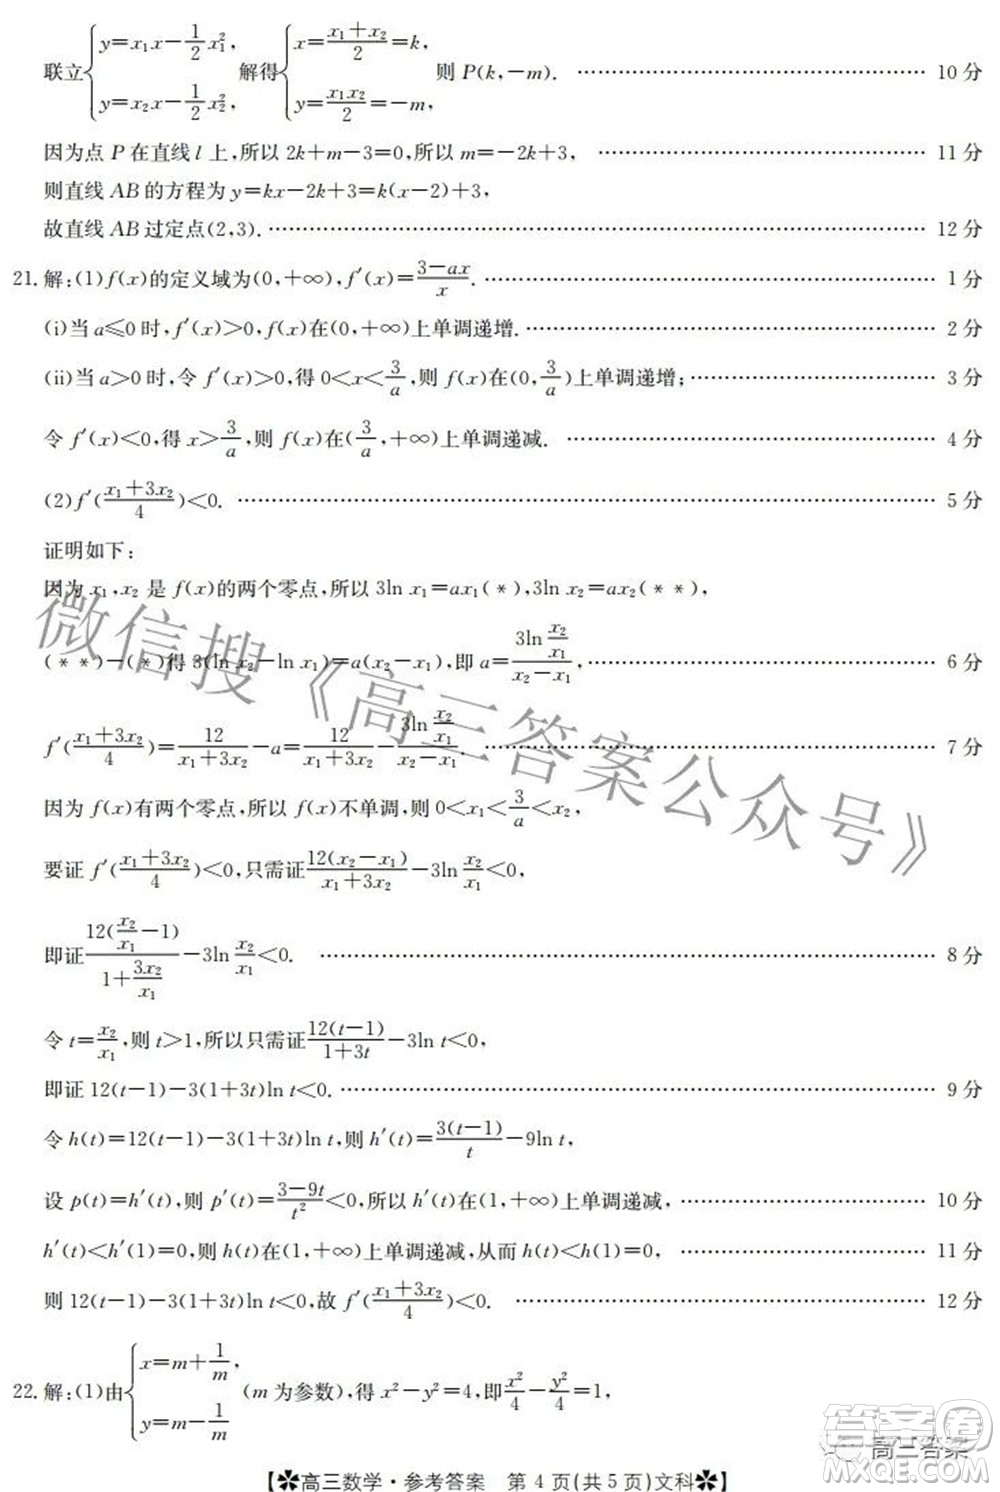 联立{y=x₁x-1/2 x₁², y=x₂x-1/2 x₂², 解得{x=(x₁+x₂)/2=k, y=x₁x₂/2=-m, 则 P(k,-m). …… 10 分
因为点 P 在直线 l 上,所以 2k+m-3=0,所以 m=-2k+3, …… 11 分
则直线 AB 的方程为 y=kx-2k+3=k(x-2)+3,
故直线 AB 过定点(2,3). …… 12 分
21. 解:(1)f(x)的定义域为(0,+∞),f′(x)=(3-ax)/x. …… 1 分
(i)当 a≤0 时,f′(x)>0,f(x)在(0,+∞)上单调递增. …… 2 分
(ii)当 a>0 时,令 f′(x)>0,得 0<x<3/a,则 f(x)在(0,3/a)上单调递增; …… 3 分
令 f′(x)<0,得 x>3/a,则 f(x)在(3/a,+∞)上单调递减. …… 4 分
(2)f′((x₁+3x₂)/4)<0. …… 5 分
证明如下:
因为 x₁,x₂ 是 f(x)的两个零点,所以 3ln x₁=ax₁(*),3ln x₂=ax₂(**),
(**)-(*)得 3(ln x₂-ln x₁)=a(x₂-x₁),即 a=(3ln x₂/x₁)/(x₂-x₁), …… 6 分
f′((x₁+3x₂)/4)=12/(x₁+3x₂)-a=12/(x₁+3x₂)-(3ln x₂/x₁)/(x₂-x₁). …… 7 分
因为 f(x)有两个零点,所以 f(x)不单调,则 0<x₁<3/a<x₂,
要证 f′((x₁+3x₂)/4)<0,只需证12(x₂-x₁)/(x₁+3x₂)-3ln x₂/x₁<0,
即证12(x₂/x₁-1)/(1+3x₂/x₁)-3ln x₂/x₁<0. …… 8 分
令 t=x₂/x₁,则 t>1,所以只需证12(t-1)/(1+3t)-3ln t<0,
即证 12(t-1)-3(1+3t)ln t<0. …… 9 分
令 h(t)=12(t-1)-3(1+3t)ln t,则 h′(t)=3(t-1)/t-9ln t,
设 p(t)=h′(t),则 p′(t)=(3-9t)/t²<0,所以 h′(t)在(1,+∞)上单调递减, …… 10 分
h′(t)<h′(1)=0,则 h(t)在(1,+∞)上单调递减,从而 h(t)<h(1)=0, …… 11 分
则 12(t-1)-3(1+3t)ln t<0,故 f′((x₁+3x₂)/4)<0. …… 12 分
22. 解:(1)由{x=m+1/m, y=m-1/m (m 为参数),得 x²-y²=4,即x²/4-y²/4=1,
【✽高三数学·参考答案 第 4 页(共 5 页)文科✽】
微信搜《高三答案公众号》
高三答案
答案圈
MXQE.COM